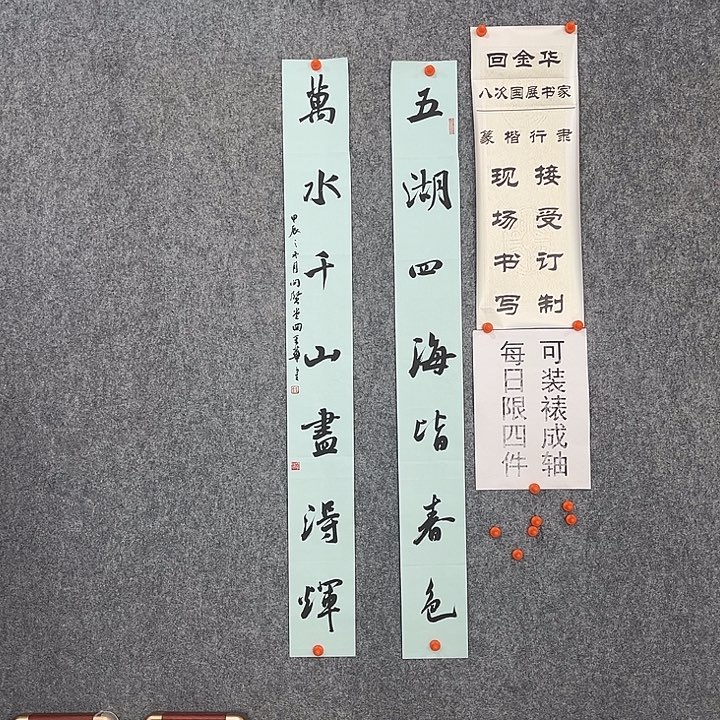 回金华
八次国展书家
篆楷行隶
接受订制
现场书写
可装裱成轴
每日限四件
五湖四海皆春色
萬水千山盡得輝